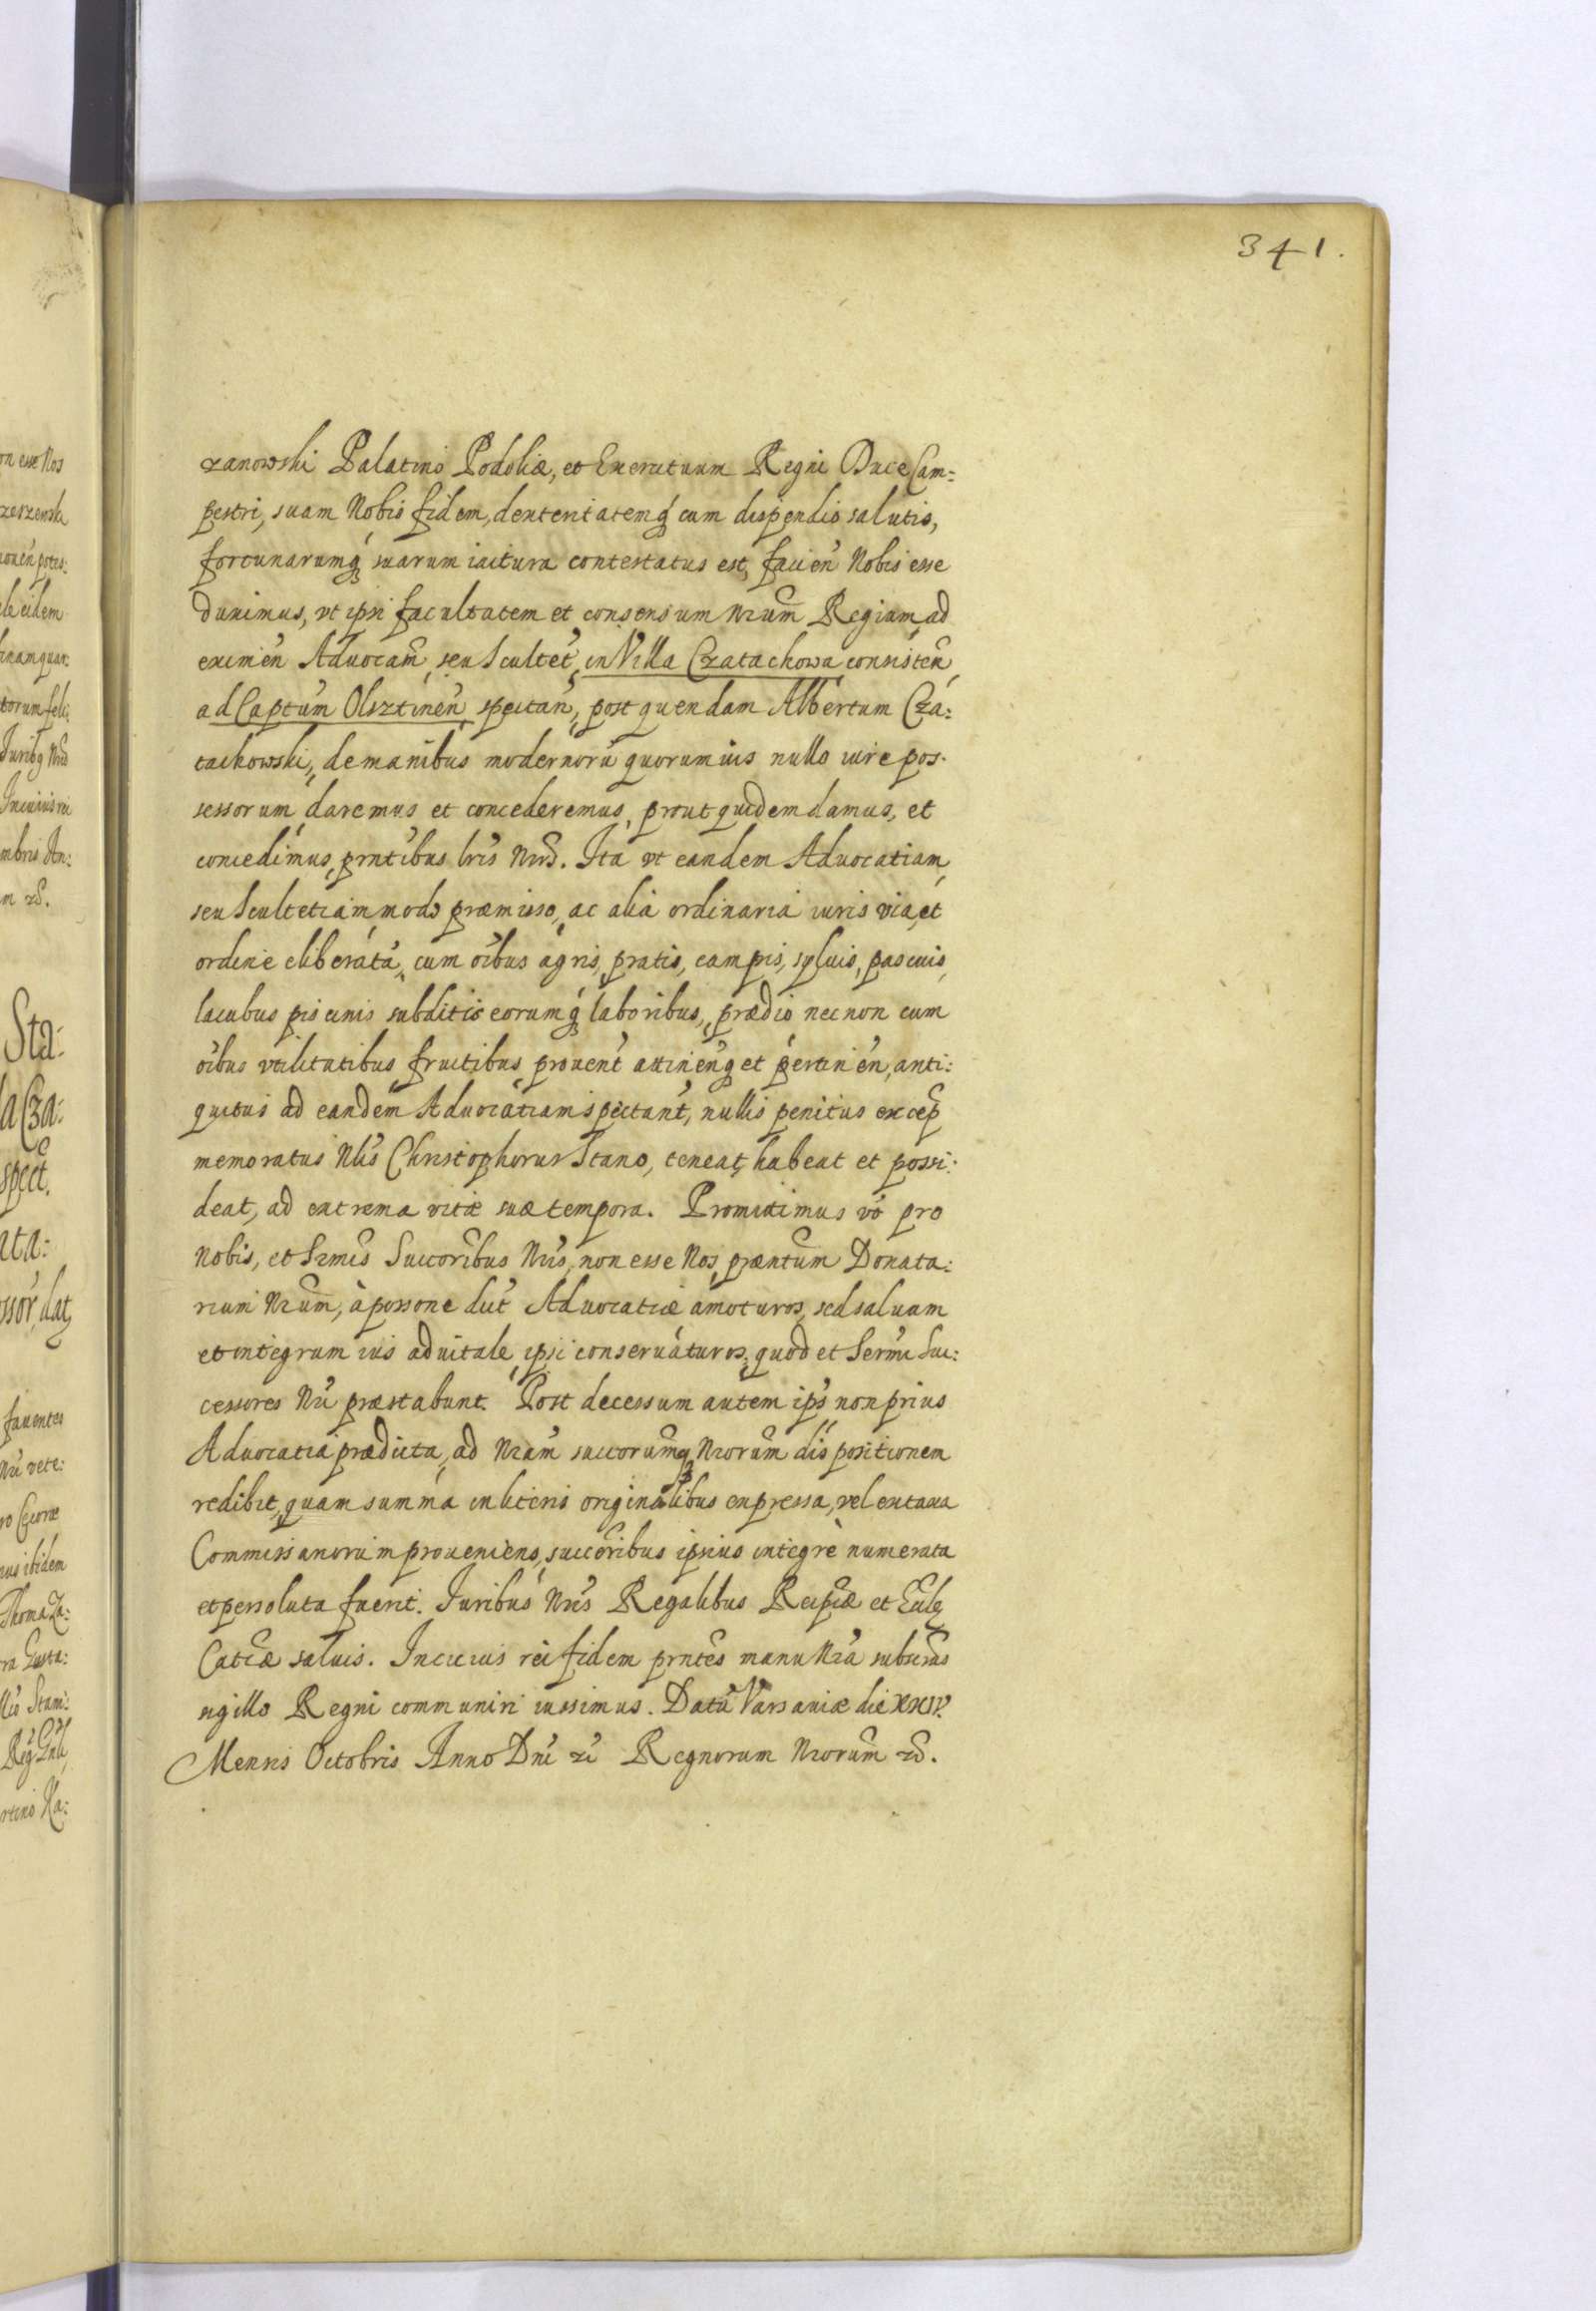 341.
zanowski Palatino Podoliæ, et Exercituum Regni Duce Cam=
pestri, suam Nobis fidem, dexteritatemq́ cum dispendio salutis,
fortunarumq́ suarum iactura contestatus est, facień Nobis esse
duximus, vt ipsi facultatem et consensum nrum̃ Regium, ad
eximeń Aduocam̃, seu Scultet́, in Villa Czatachowa consisteń,
ad Captum̃ Olsztineń spectań, post quendam Albertum Czá=
tachowski, de manibus modernorũ quorumuis nullo iure pos-
sessorum, daremus et concederemus, prout quidem damus, et
concedimus, prntibus lris nris. Ita vt eandem Aduocatiam,
seu Scultetiam, modo præmisso, ac alia ordinaria iuris via, et
ordine eliberatã, cum oibus agris, pratis, campis, syluis, pascuis,
lacubus piscinis subditis eorumq́ laboribus, prædio necnon cum
oibus vtilitatibus fructibus prouent́ attineńq et pertineń, anti=
quitus ad eandem Aduocatiam spectant́, nullis penitus excep̃
memoratus Nlis Christophorus Stano, teneat, habeat et possi=
deat, ad extrema vitæ suæ tempora. Promittimus vo pro
Nobis, et Srmis Succoribus Nris, non esse Nos, præntum̃ Donata=
rium Nrum̃, à possone dict́ Aduocatiæ amoturos, sed saluam
et integrum ius aduitale, ipsi conseruaturos, quod et Sermi Suc=
cessores Nri præstabunt. Post decessum autem ips̃ non prius
Aduocatia prædicta, ad Nram̃ succorumq Nrorum̃ dispositionem
redibit, quam summa in literis originalibus expressa, vel ex taxa
Commissariorum proueniens, succoribus ipsius integrè numerata
et persoluta fuerit. Juribus Nris Regalibus Reipcæ et Eccle
Catcæ saluis. In cuius rei fidem prntes manu Nra subscras
sigillo Regni communiri iussimus. Datũ Varsauiæ die XXIV.
Mensis Octobris Anno Dni Regnorum Nrorum̃